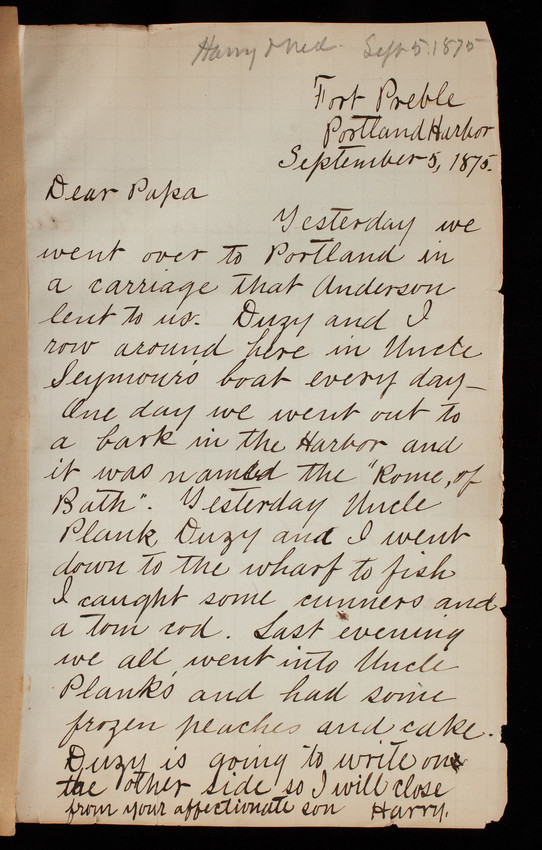 Harry & Ned. Sept 5. 1875
Fort Preble
Portland Harbor
September 5, 1875.
Dear Papa
Yesterday we
went over to Portland in
a carriage that Anderson
lent to us. Duzy and I
row around here in Uncle
Seymour's boat every day—
One day we went out to
a bark in the Harbor and
it was named the "Rome, of
Bath". Yesterday Uncle
Plank, Duzy and I went
down to the wharf to fish
I caught some cunners and
a tom cod. Last evening
we all went into Uncle
Plank's and had some
frozen peaches and cake.
Duzy is going to write on
the other side so I will close
from your affectionate son Harry.